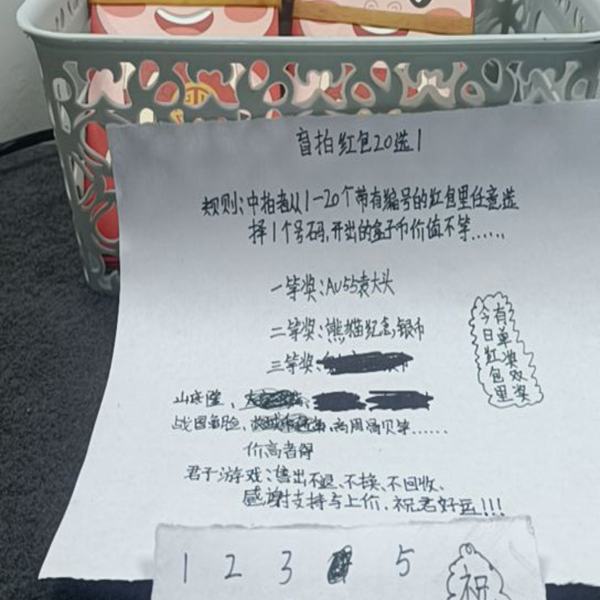 盲拍红包20选1
规则:中拍者从1-20个带有编号的红包里任意选
择1个号码,开出的盒子币价值不等......
一等奖:AU55袁大头
二等奖:熊猫纪念银币
三等奖:
今日红包里
有单奖双奖
战国鱼脸,
商周贝等......
价高者得
君子游戏:售出不退、不换、不回收、
感谢支持与上价,祝君好运!!!
1 2 3 5
祝